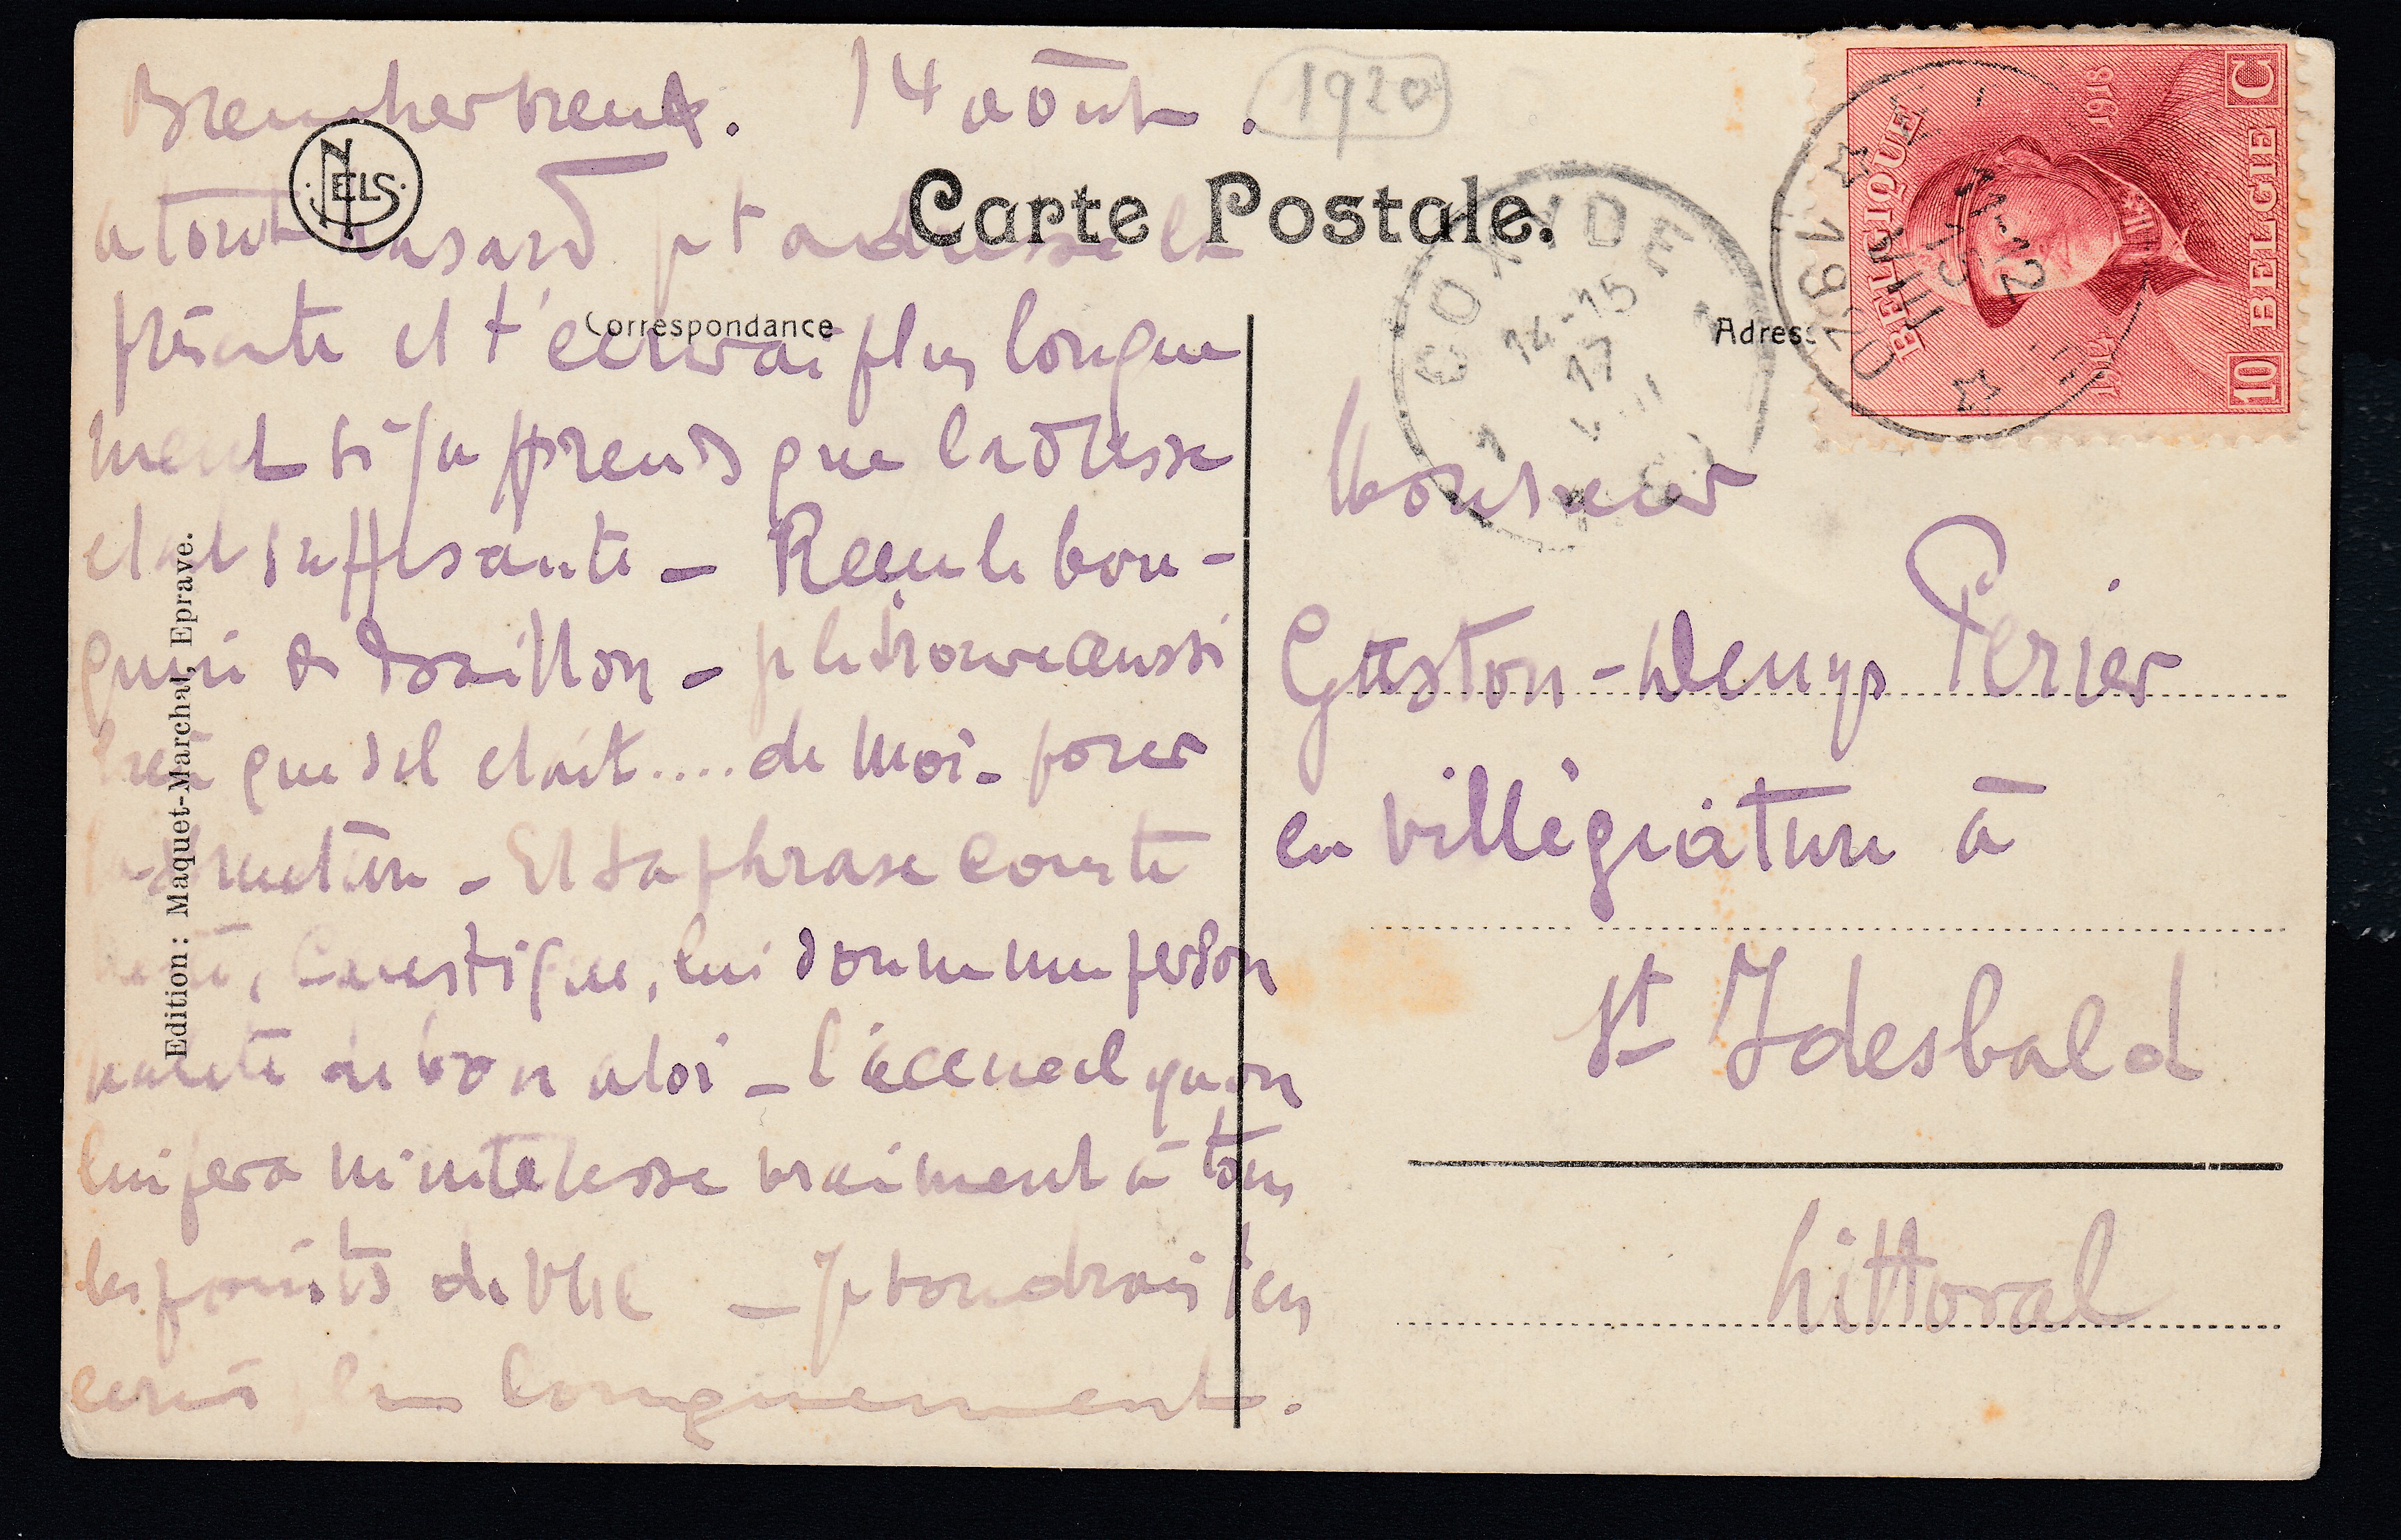 14 août.
1920
NELS
a tout hasard je t'adresse la
Carte Postale.
présente et t'écrirai plus longue
Correspondance
ment si j'apprends que l'adresse
était suffisante – Reçu le bou-
quin de – je le trouve aussi
bien que s'il était .... de moi –
– Et sa phrase courte
, lui donne une person
nalité de bon aloi – l'accueil qu'on
lui fera m'intéresse vraiment à tous
les points de vue – Je voudrais t'en
écrire longuement.
Edition : Maquet-Marchal, Eprave.
COXYDE
14-15
17
VIII
1
1
Adres
BELGIQUE
BELGIE
1914
1918
10
C
11-12
15
VIII
1920
Monsieur
Gaston-Denys Périer
en villégiature à
St Idesbald
Littoral